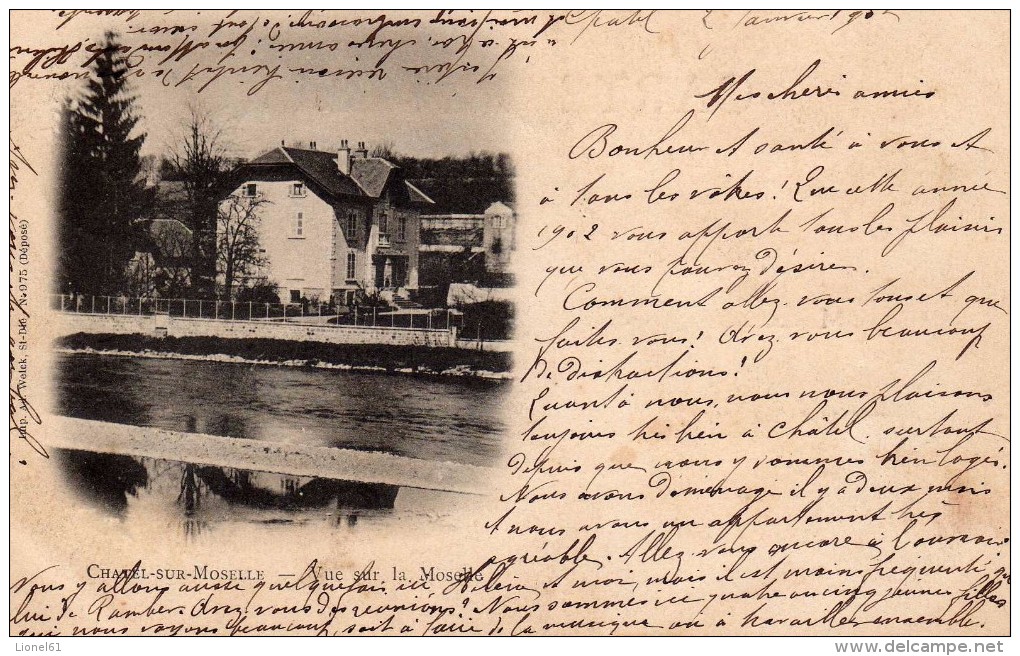 Châtel 2 Janvier 1902
Mes chères amies
Bonheur et santé à vous et
à tous les vôtres ! Que cette année
1902 vous apporte tous les plaisirs
que vous pouvez désirer.
Comment allez-vous tous et que
faites-vous ! Avez-vous beaucoup
de distractions !
Quant à nous, nous nous plaisons
toujours très bien à Châtel surtout
depuis que nous y sommes bien logés.
Nous avons déménagé il y a deux mois
et nous avons un appartement très
agréable. Allez-vous encore à l'ouvroir
Nous y allons aussi quelquefois ici, Hélène et moi, mais il est moins fréquenté que
lui de Rambervillers. Avez-vous des réunions ? Nous sommes ici quatre ou cinq jeunes filles
qui nous voyons beaucoup, soit à faire de la musique ou à travailler ensemble.
CHATEL-SUR-MOSELLE — Vue sur la Moselle
Imp. Ad. Weick, St-Dié N° 975 (Déposé)
Lionel61
www.delcampe.net